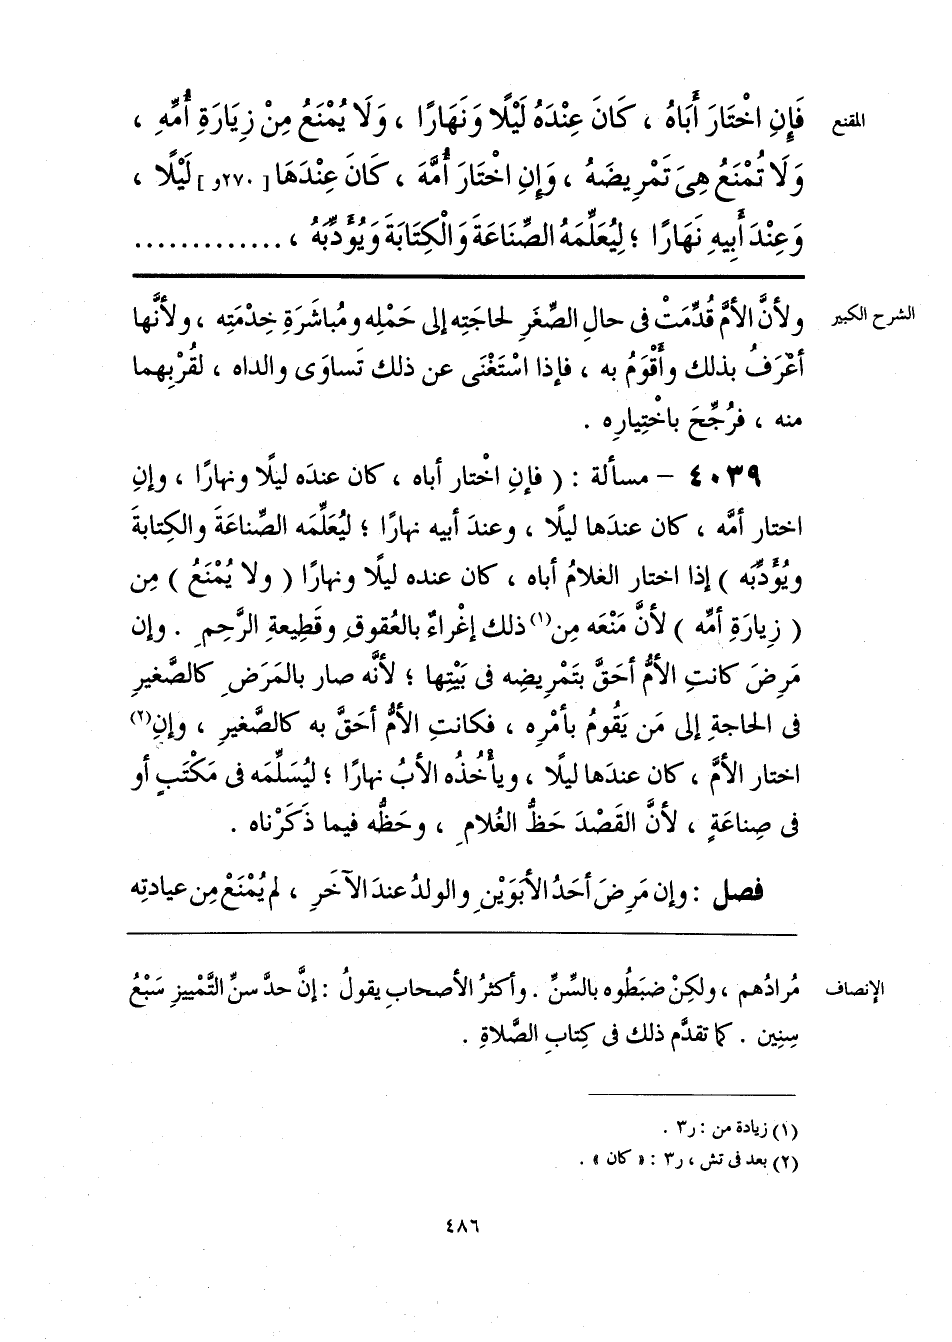 المقنع فَإِنِ اخْتَارَ أَبَاهُ ، كَانَ عِنْدَهُ لَيْلًا وَنَهَارًا ، وَلَا يُمْنَعُ مِنْ زِيَارَةِ أُمِّهِ ،
وَلَا تُمْنَعُ هِىَ تَمْرِيضَهُ ، وَإِنِ اخْتَارَ أُمَّهُ ، كَانَ عِنْدَهَا [ ٢٧٠و ] لَيْلًا ،
وَعِنْدَ أَبِيهِ نَهَارًا ؛ لِيُعَلِّمَهُ الصِّنَاعَةَ وَالْكِتَابَةَ وَيُؤَدِّبَهُ ، .............
الشرح الكبير ولأنَّ الأمَّ قُدِّمَتْ فى حالِ الصِّغَرِ لحاجَتِه إلى حَمْلِه ومُباشَرَةِ خِدْمَتِه ، ولأنَّها
أعْرَفُ بذلك وأَقْوَمُ به ، فإذا اسْتَغْنَى عن ذلك تَساوَى والداه ، لقُرْبِهما
منه ، فرُجِّحَ باخْتِيارِه .
٤٠٣٩ – مسألة : ( فإنِ اخْتار أباه ، كان عندَه ليلًا ونهارًا ، وإنِ
اختار أمَّه ، كان عندَها ليلًا ، وعندَ أبيه نهارًا ؛ ليُعَلِّمَه الصِّناعَةَ والكِتابةَ
ويُؤَدِّبَه ) إذا اختار الغلامُ أباه ، كان عنده ليلًا ونهارًا ( ولا يُمْنَعُ ) مِن
( زِيارَةِ أمِّه ) لأنَّ مَنْعَه مِن(١) ذلك إغْراءٌ بالعُقوقِ وقَطِيعةِ الرَّحِمِ . وإن
مَرِضَ كانتِ الأمُّ أحَقَّ بتَمْرِيضِه فى بَيْتِها ؛ لأنَّه صار بالمَرَضِ كالصَّغيرِ
فى الحاجةِ إلى مَن يَقُومُ بأمْرِه ، فكانتِ الأمُّ أحَقَّ به كالصَّغيرِ ، وإنِ(٢)
اختار الأمَّ ، كان عندَها ليلًا ، ويأْخُذُه الأبُ نهارًا ؛ ليُسَلِّمَه فى مَكْتَبٍ أو
فى صِناعَةٍ ، لأنَّ القَصْدَ حَظُّ الغُلامِ ، وحَظُّه فيما ذَكَرْناه .
فصل : وإن مَرِضَ أحَدُ الأبَوَيْنِ والولدُ عندَ الآخَرِ ، لم يُمْنَعْ مِن عيادتِه
الإنصاف مُرادُهم ، ولكِنْ ضبَطُوه بالسِّنِّ . وأكثرُ الأصحابِ يقولُ : إنَّ حدَّ سنِّ التَّمْييزِ سَبْعُ
سِنِين . كما تقدَّم ذلك فى كِتابِ الصَّلاةِ .
(١) زيادة من : ر٣ .
(٢) بعد فى تش ، ر٣ : « كان » .
٤٨٦